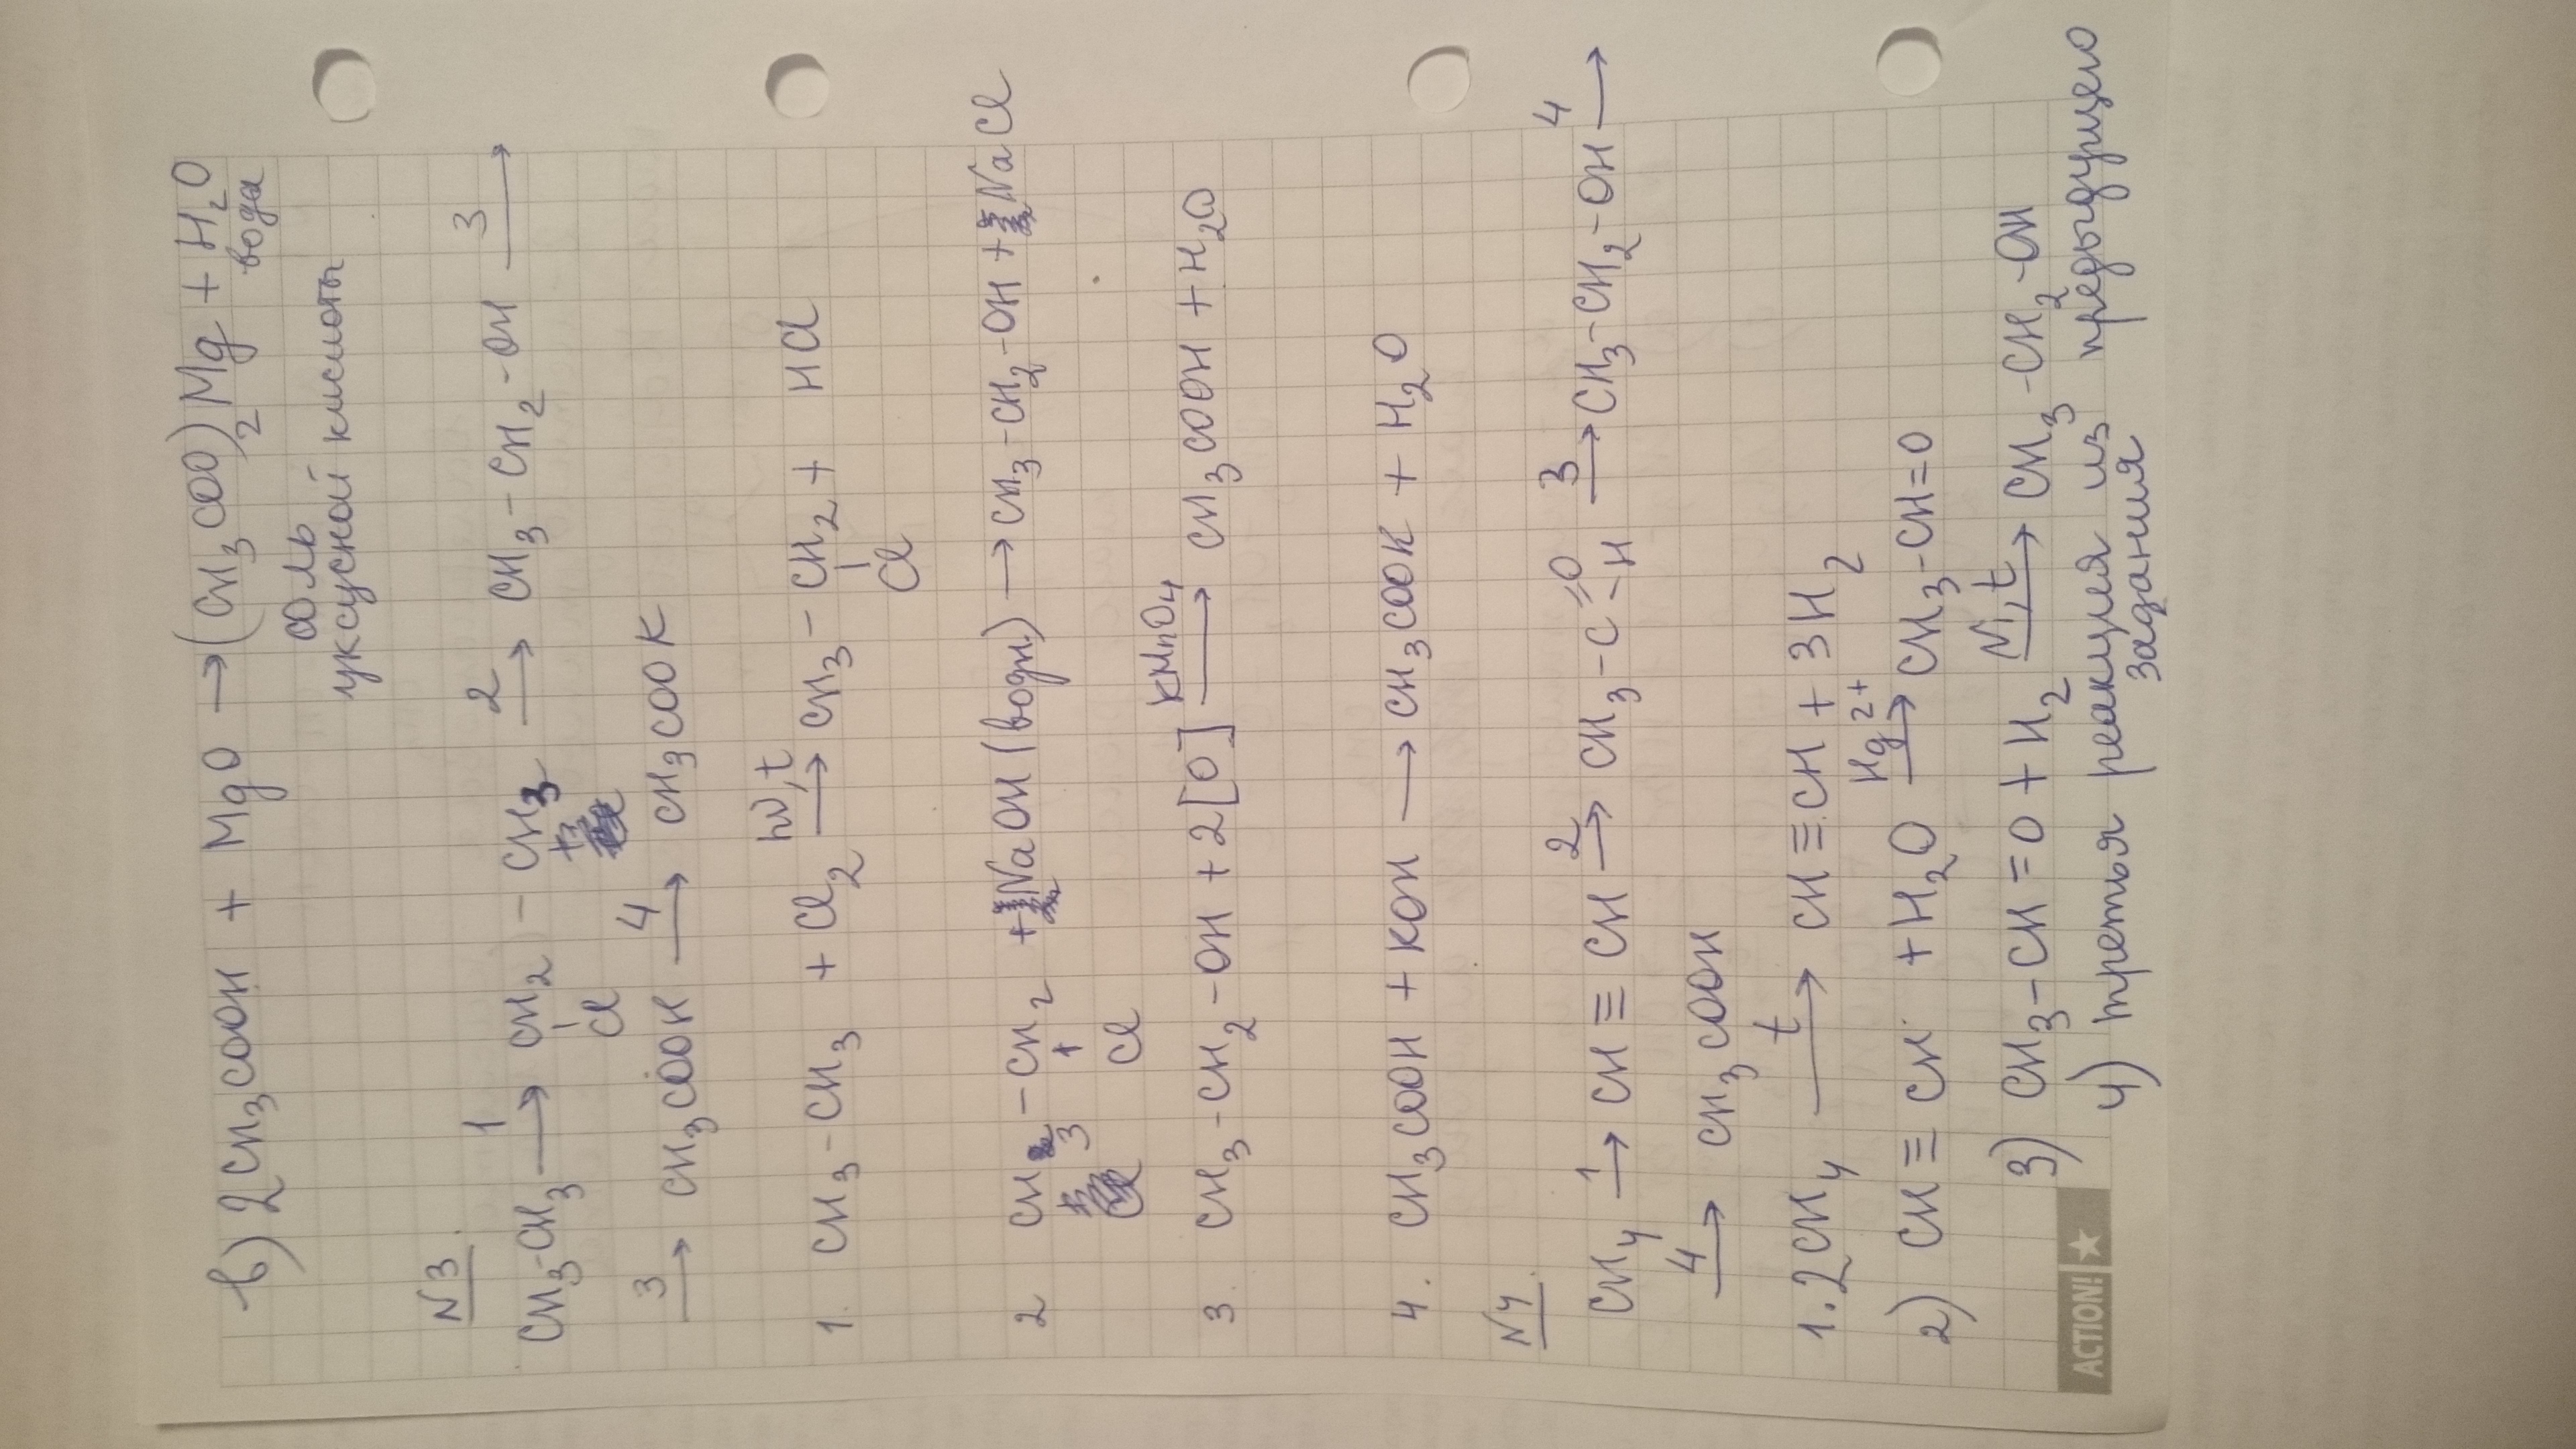 в) 2CH₃COOH + MgO → (CH₃COO)₂Mg + H₂O
соль вода
уксусной кислоты
N3.
CH₃-CH₃ —1→ CH₂ - CH₃ —2→ CH₃-CH₂-OH —3→
Cl
—3→ CH₃COOH —4→ CH₃COOK
1. CH₃-CH₃ + Cl₂ —hν,t→ CH₃-CH₂ + HCl
Cl
2 CH₃-CH₂ + NaOH (водн.) → CH₃-CH₂-OH + NaCl
Cl
3. CH₃-CH₂-OH + 2[O] —KMnO₄→ CH₃COOH + H₂O
4. CH₃COOH + KOH → CH₃COOK + H₂O
N4.
CH₄ —1→ CH≡CH —2→ CH₃-C(=O)-H —3→ CH₃-CH₂-OH —4→
—4→ CH₃COOH
1. 2CH₄ —t→ CH≡CH + 3H₂
2) CH≡CH + H₂O —Hg²⁺→ CH₃-CH=O
3) CH₃-CH=O + H₂ —Ni,t→ CH₃-CH₂-OH
4) третья реакция из предыдущего
задания
ACTION!